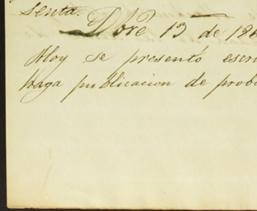 senta.
Dbre 13 de 186
Hoy se presentó escri
haga publicacion de prob